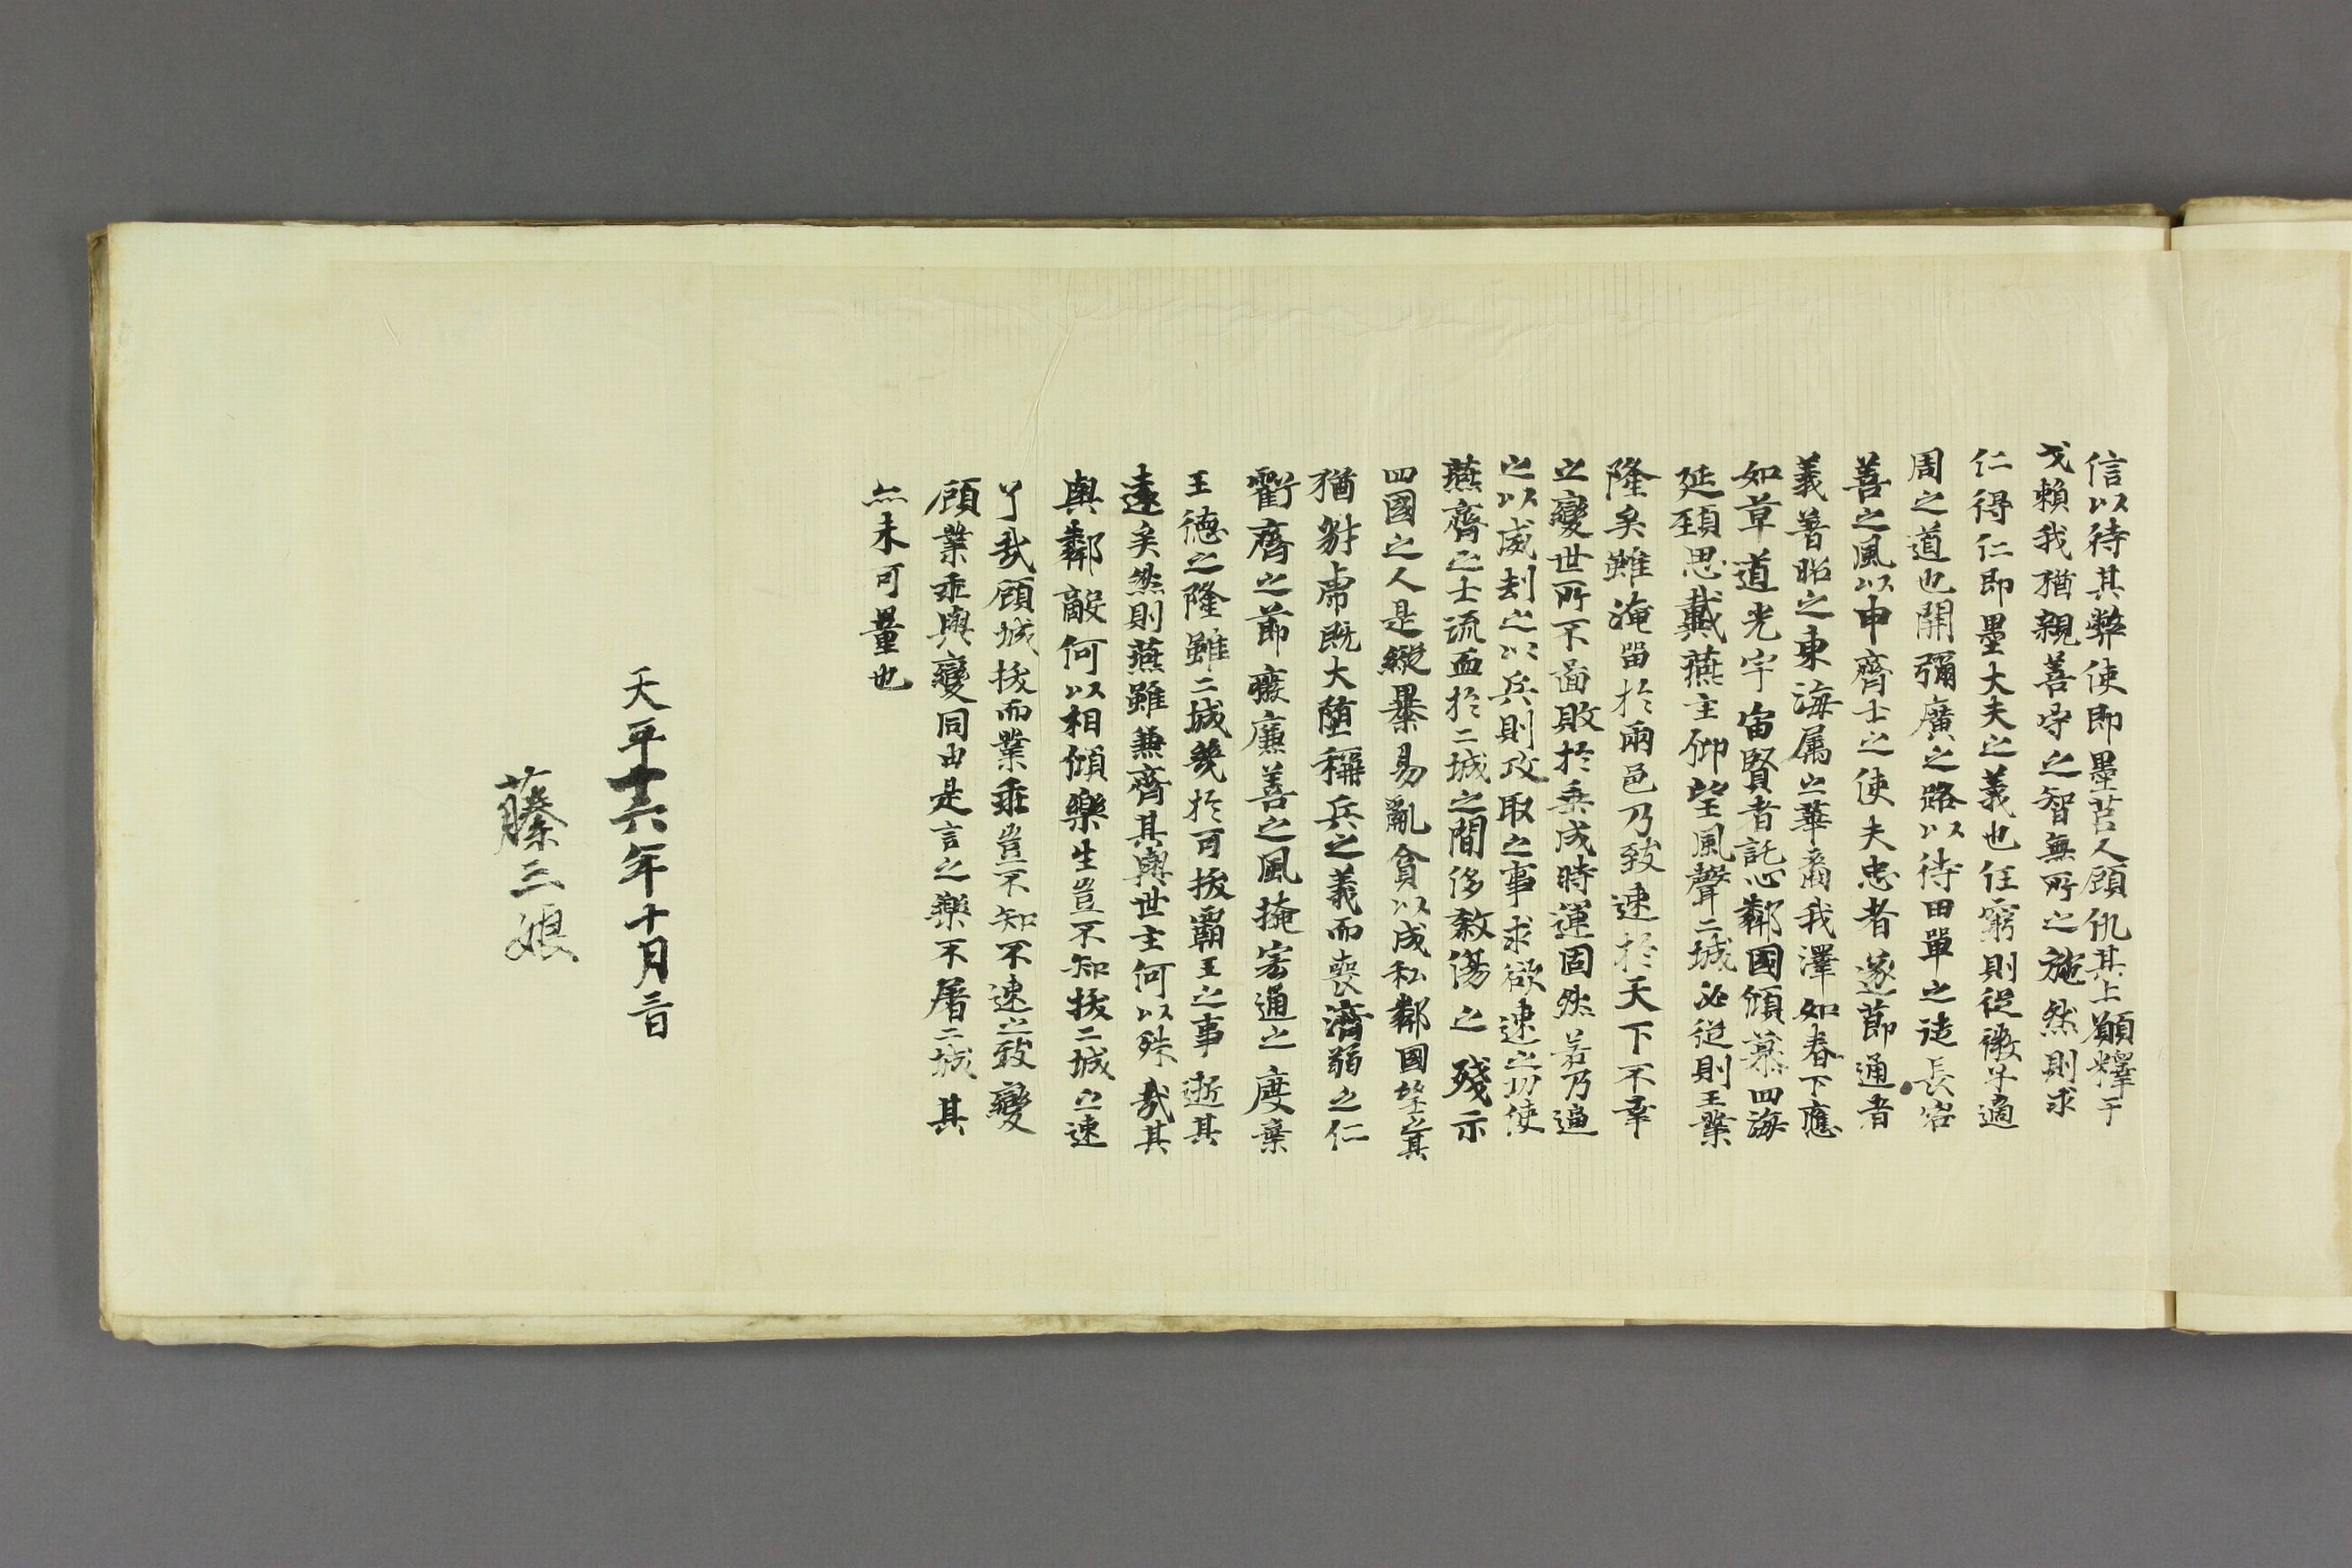 信以待其弊使即墨莒人顧仇其上願釋干
戈賴我猶親善守之智無所之施然則求
仁得仁即墨大夫之義也任窮則從微子適
周之道也開彌廣之路以待田單之徒長容
善之風以申齊士之使夫忠者遂節通者
義著昭之東海属之華裔我澤如春下應
如草道光宇宙賢者託心鄰國傾慕四海
延頚思戴燕主仰望風聲二城必從則王業
隆矣雖淹留於兩邑乃致速於天下不幸
之變世所不啚敗於垂成時運固然若乃逼
之以威刧之以兵則攻取之事求欲速之功使
燕齊之士流血於二城之間侈敎傷之殘示
四國之人是縱暴易亂貪以成私鄰國望之其
猶豺虎既大墮稱兵之義而喪濟弱之仁
虧齊之節癈廉善之風掩宏通之度棄
王德之隆雖二城幾於可拔霸王之事逝其
遠矣然則燕雖兼齊其與世主何以殊哉其
與鄰敵何以相傾樂生豈不知拔二城之速
了哉顧城拔而業乖豈不知不速之致變
顧業乖與變同由是言之樂不屠二城其
亦未可量也
天平十六年十月三日
藤三娘